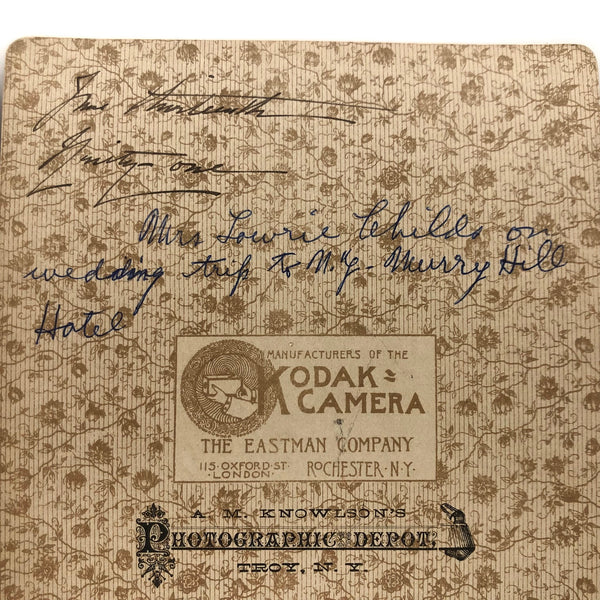 June Thirteenth
Ninety-one
Mrs Lowrie Childs on
wedding trip to N.Y- Murry Hill
Hotel
MANUFACTURERS OF THE
KODAK
CAMERA
THE EASTMAN COMPANY
115·OXFORD·ST· ROCHESTER·N·Y·
·LONDON·
A. M. KNOWLSON'S
PHOTOGRAPHIC DEPOT,
TROY, N. Y.